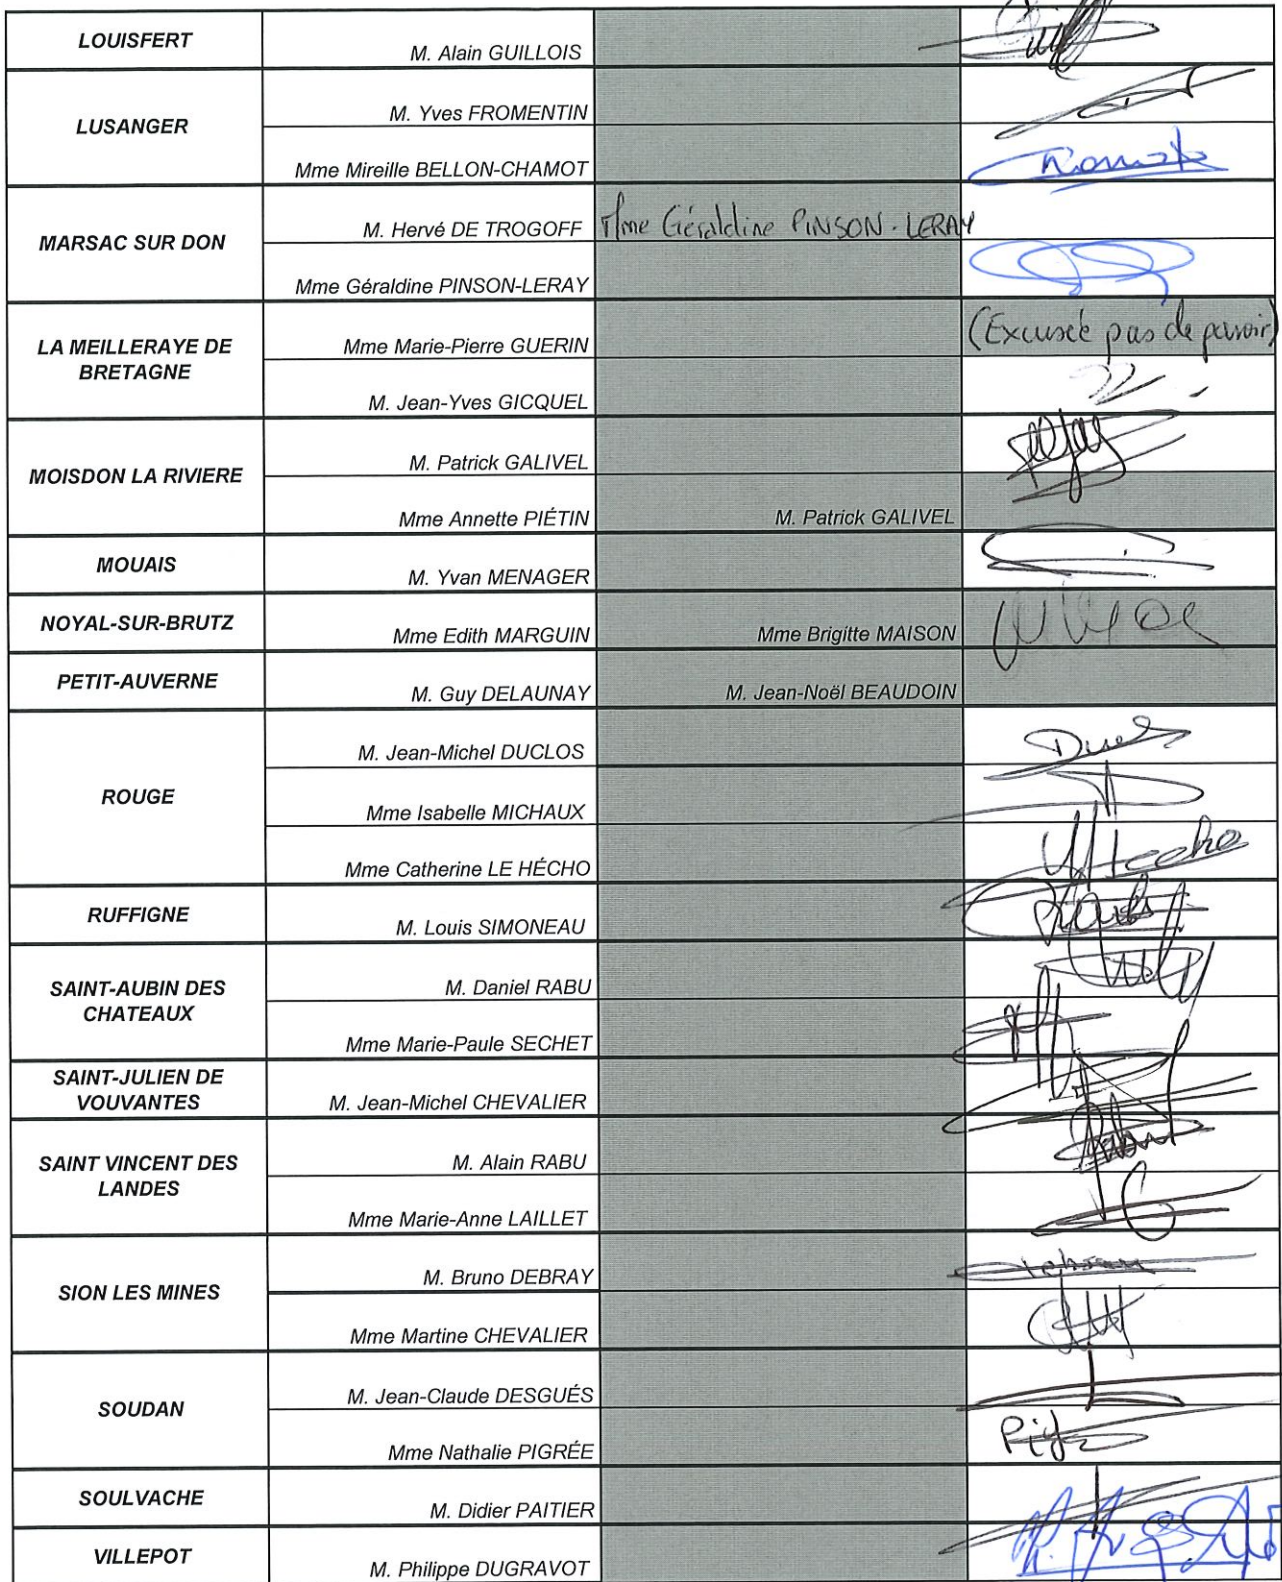 LOUISFERT
M. Alain GUILLOIS
LUSANGER
M. Yves FROMENTIN
Mme Mireille BELLON-CHAMOT
MARSAC SUR DON
M. Hervé DE TROGOFF Mme Géraldine PINSON-LERAY
Mme Géraldine PINSON-LERAY
LA MEILLERAYE DE
BRETAGNE
Mme Marie-Pierre GUERIN (Excusée pas de pouvoir)
M. Jean-Yves GICQUEL
MOISDON LA RIVIERE
M. Patrick GALIVEL
Mme Annette PIÉTIN M. Patrick GALIVEL
MOUAIS
M. Yvan MENAGER
NOYAL-SUR-BRUTZ
Mme Edith MARGUIN Mme Brigitte MAISON
PETIT-AUVERNE
M. Guy DELAUNAY M. Jean-Noël BEAUDOIN
ROUGE
M. Jean-Michel DUCLOS
Mme Isabelle MICHAUX
Mme Catherine LE HÉCHO
RUFFIGNE
M. Louis SIMONEAU
SAINT-AUBIN DES
CHATEAUX
M. Daniel RABU
Mme Marie-Paule SECHET
SAINT-JULIEN DE
VOUVANTES
M. Jean-Michel CHEVALIER
SAINT VINCENT DES
LANDES
M. Alain RABU
Mme Marie-Anne LAILLET
SION LES MINES
M. Bruno DEBRAY
Mme Martine CHEVALIER
SOUDAN
M. Jean-Claude DESGUÉS
Mme Nathalie PIGRÉE
SOULVACHE
M. Didier PAITIER
VILLEPOT
M. Philippe DUGRAVOT